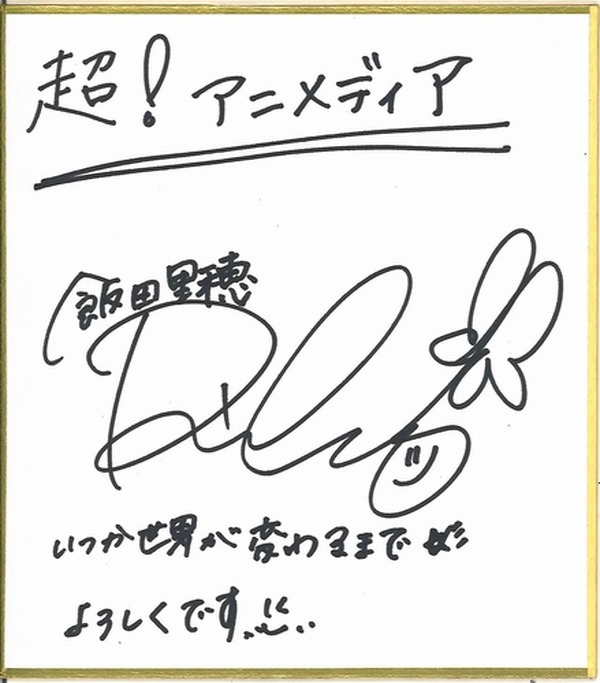 超!アニメディア
飯田里穂
いつか世界が変わるまで
よろしくです